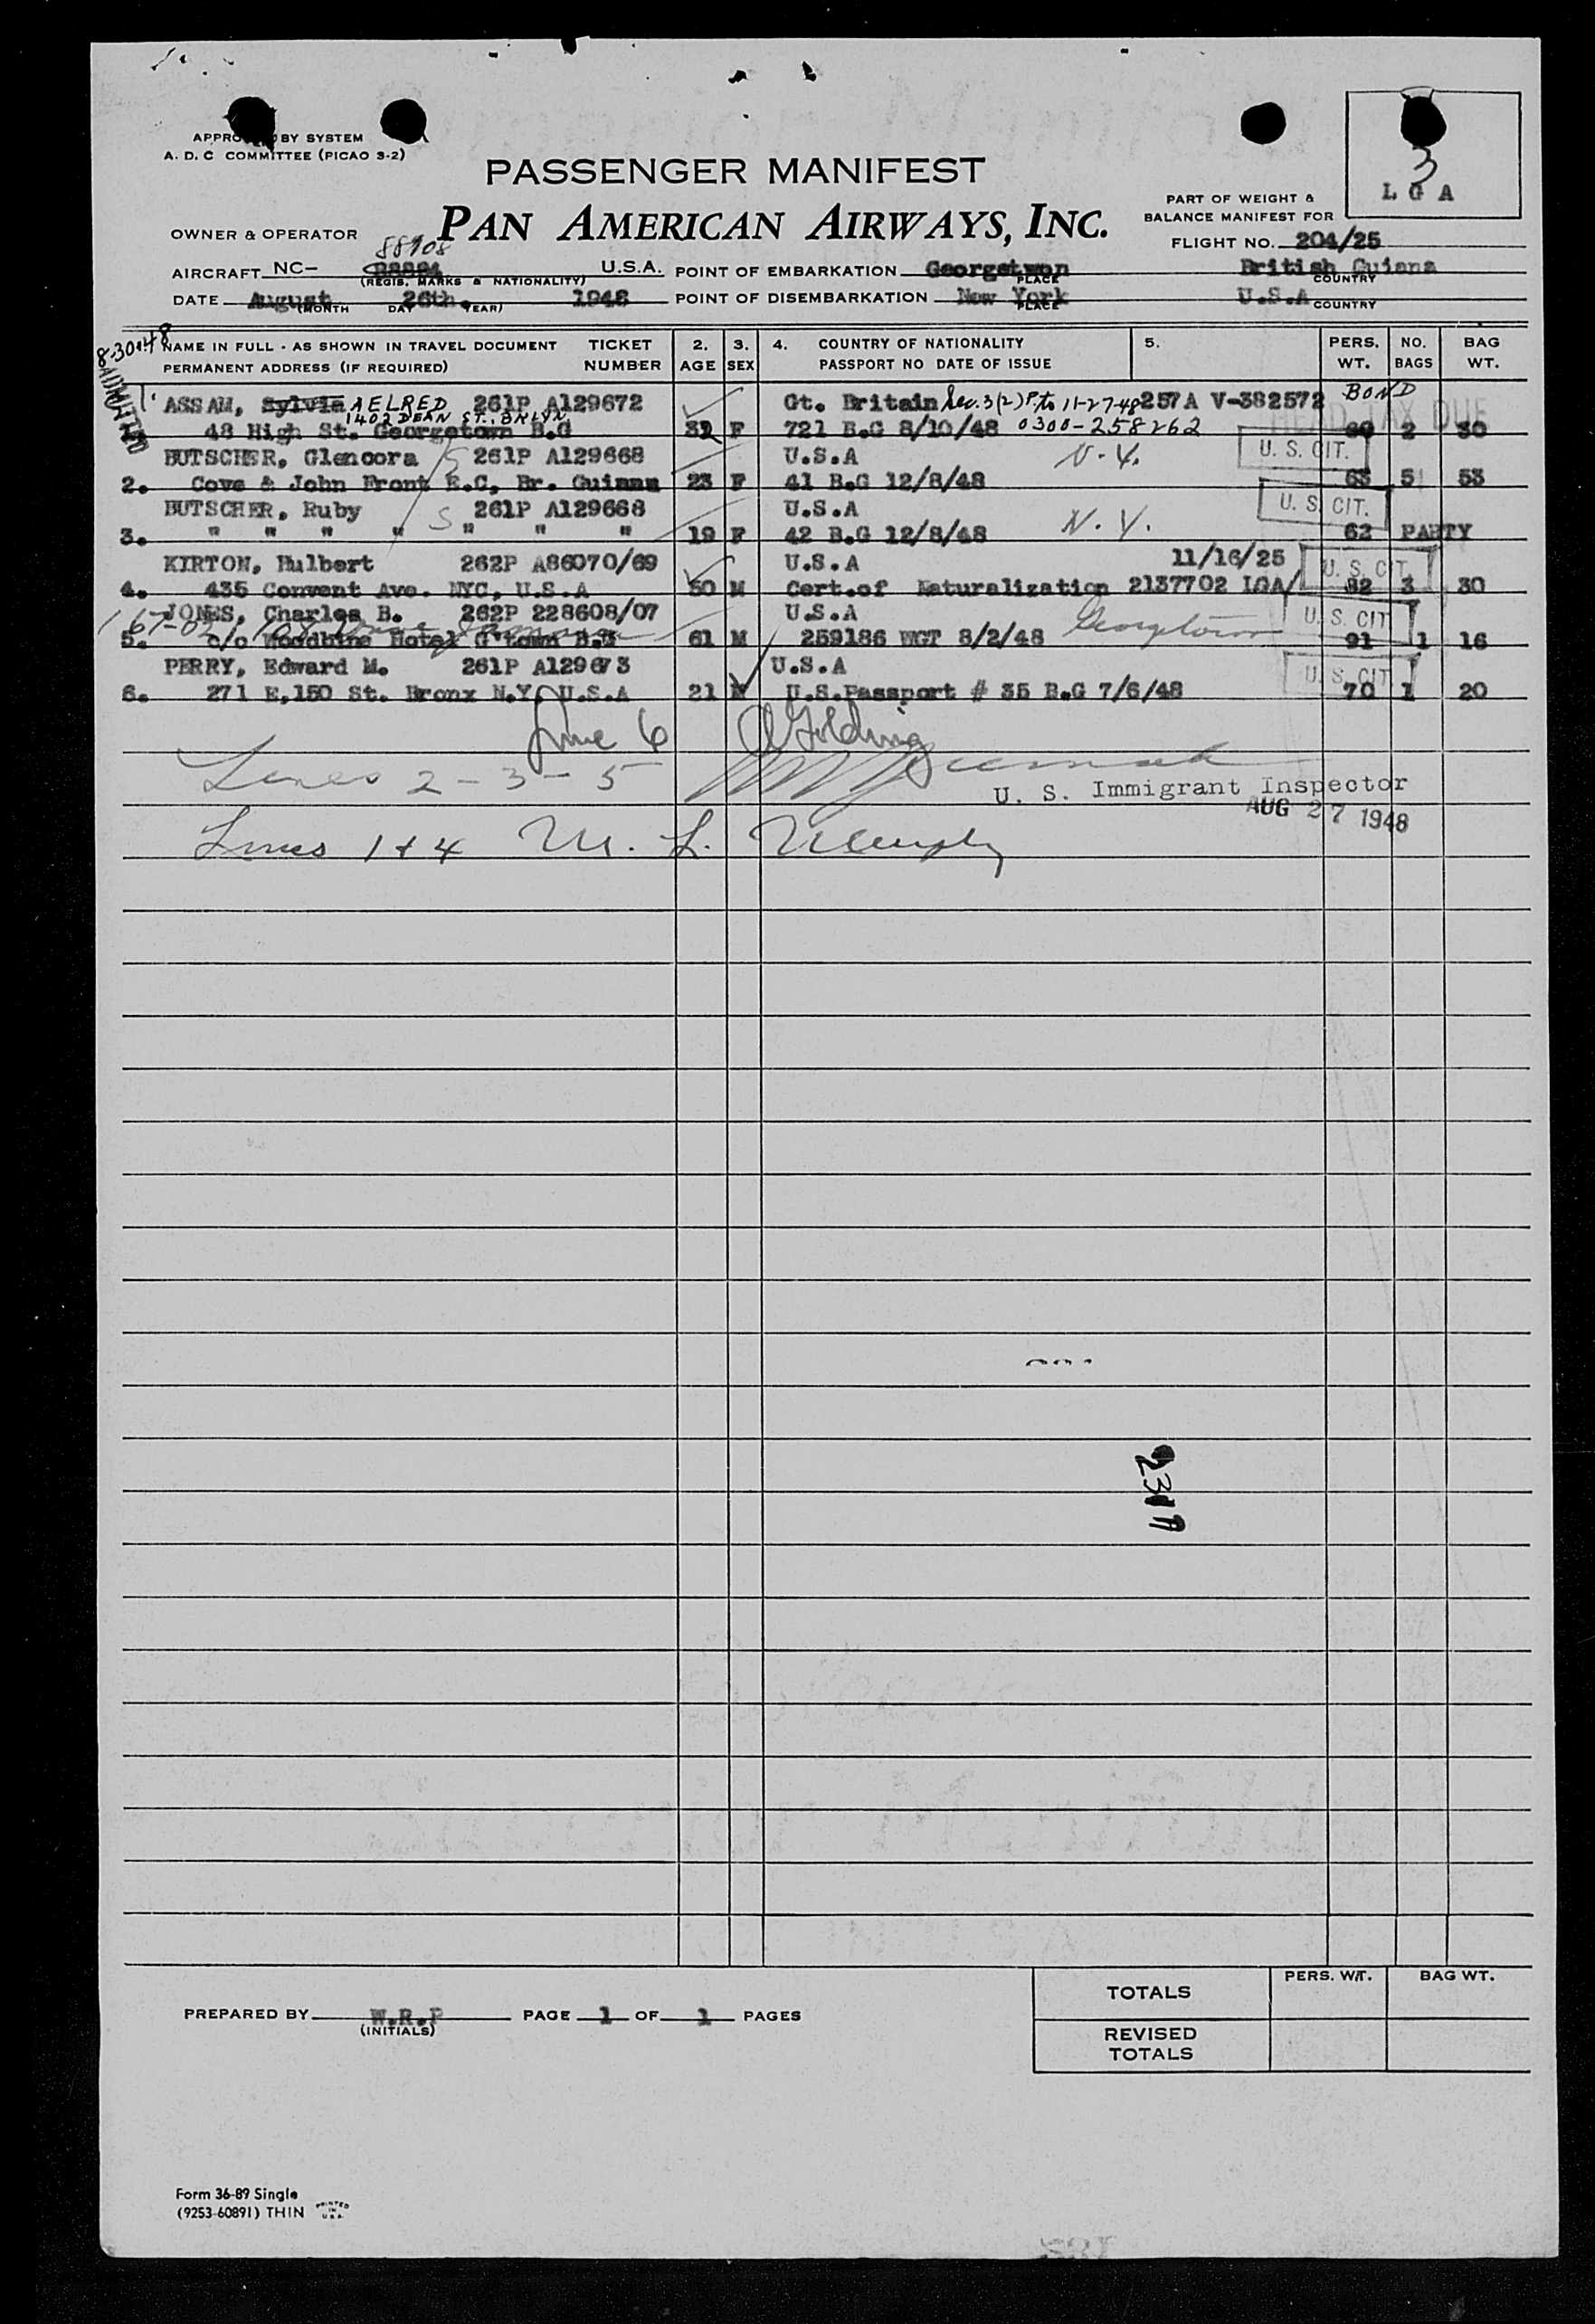 APPROVED BY SYSTEM
A. D. C COMMITTEE (PICAO S-2)
PASSENGER MANIFEST
3
L G A
PART OF WEIGHT &
BALANCE MANIFEST FOR
OWNER & OPERATOR
PAN AMERICAN AIRWAYS, INC.
FLIGHT NO. 204/25
88908
AIRCRAFT NC- U.S.A. POINT OF EMBARKATION Georgetwon British Guiana
(REGIS. MARKS & NATIONALITY) PLACE COUNTRY
DATE August 26th. 1948 POINT OF DISEMBARKATION New York U.S.A
(MONTH DAY YEAR) PLACE COUNTRY
8-30-48
ADMITTED
NAME IN FULL - AS SHOWN IN TRAVEL DOCUMENT TICKET 2. 3. 4. COUNTRY OF NATIONALITY 5. PERS. NO. BAG
PERMANENT ADDRESS (IF REQUIRED) NUMBER AGE SEX PASSPORT NO DATE OF ISSUE WT. BAGS WT.
ASSAM, Sylvia AELRED 261P A129672 Gt. Britain Sec. 3(2) to 11-27-48 257A V-382572 BOND
1402 DEAN ST. BKLYN HEAD TAX DUE
1. 48 High St. Georgetown B.G 32 F 721 B.G 8/10/48 0300-258262 2 30
BUTSCHER, Glencora S 261P A129668 U.S.A N.Y. U. S. CIT.
2. Cove & John Front E.C, Br. Guiana 23 F 41 B.G 12/8/48 63 5 53
BUTSCHER, Ruby S 261P A129668 U.S.A N.Y. U. S. CIT.
3. " " " " " " " 19 F 42 B.G 12/8/48 62 PARTY
KIRTON, Hulbert 262P A86070/69 U.S.A 11/16/25 U. S. CIT.
4. 435 Convent Ave. NYC, U.S.A 50 M Cert.of Naturalization 2137702 LGA/ 82 3 30
JONES, Charles B. 262P 228608/07 U.S.A U. S. CIT
5. c/o Woodbine Hotel G'town B.G 61 M 259186 WGT 8/2/48 Georgetown 91 1 16
PERRY, Edward M. 261P A129673 U.S.A U. S. CIT
6. 271 E.150 St. Bronx N.Y, U.S.A 21 M U.S.Passport # 35 B.G 7/6/48 70 1 20
Line 6 A Golding
Lines 2-3-5
U. S. Immigrant Inspector
AUG 27 1948
Lines 1+4 M. L.
PREPARED BY W.R.P PAGE 1 OF 1 PAGES
(INITIALS)
PERS. WT. BAG WT.
TOTALS
REVISED
TOTALS
Form 36-89 Single
(9253-60891) THIN PRINTED IN U.S.A.